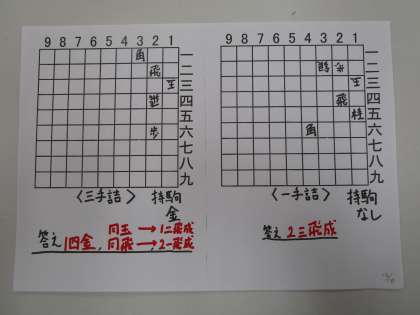 9 8 7 6 5 4 3 2 1
角 一
飛 二
王 三
四
五
歩 六
七
八
九
〈三手詰〉 持駒
金
答え 1四金、同玉→1二飛成
同飛→2一飛成
9 8 7 6 5 4 3 2 1
一
二
王 三
飛 四
桂 五
角 六
七
八
九
〈一手詰〉 持駒
なし
答え 2三飛成